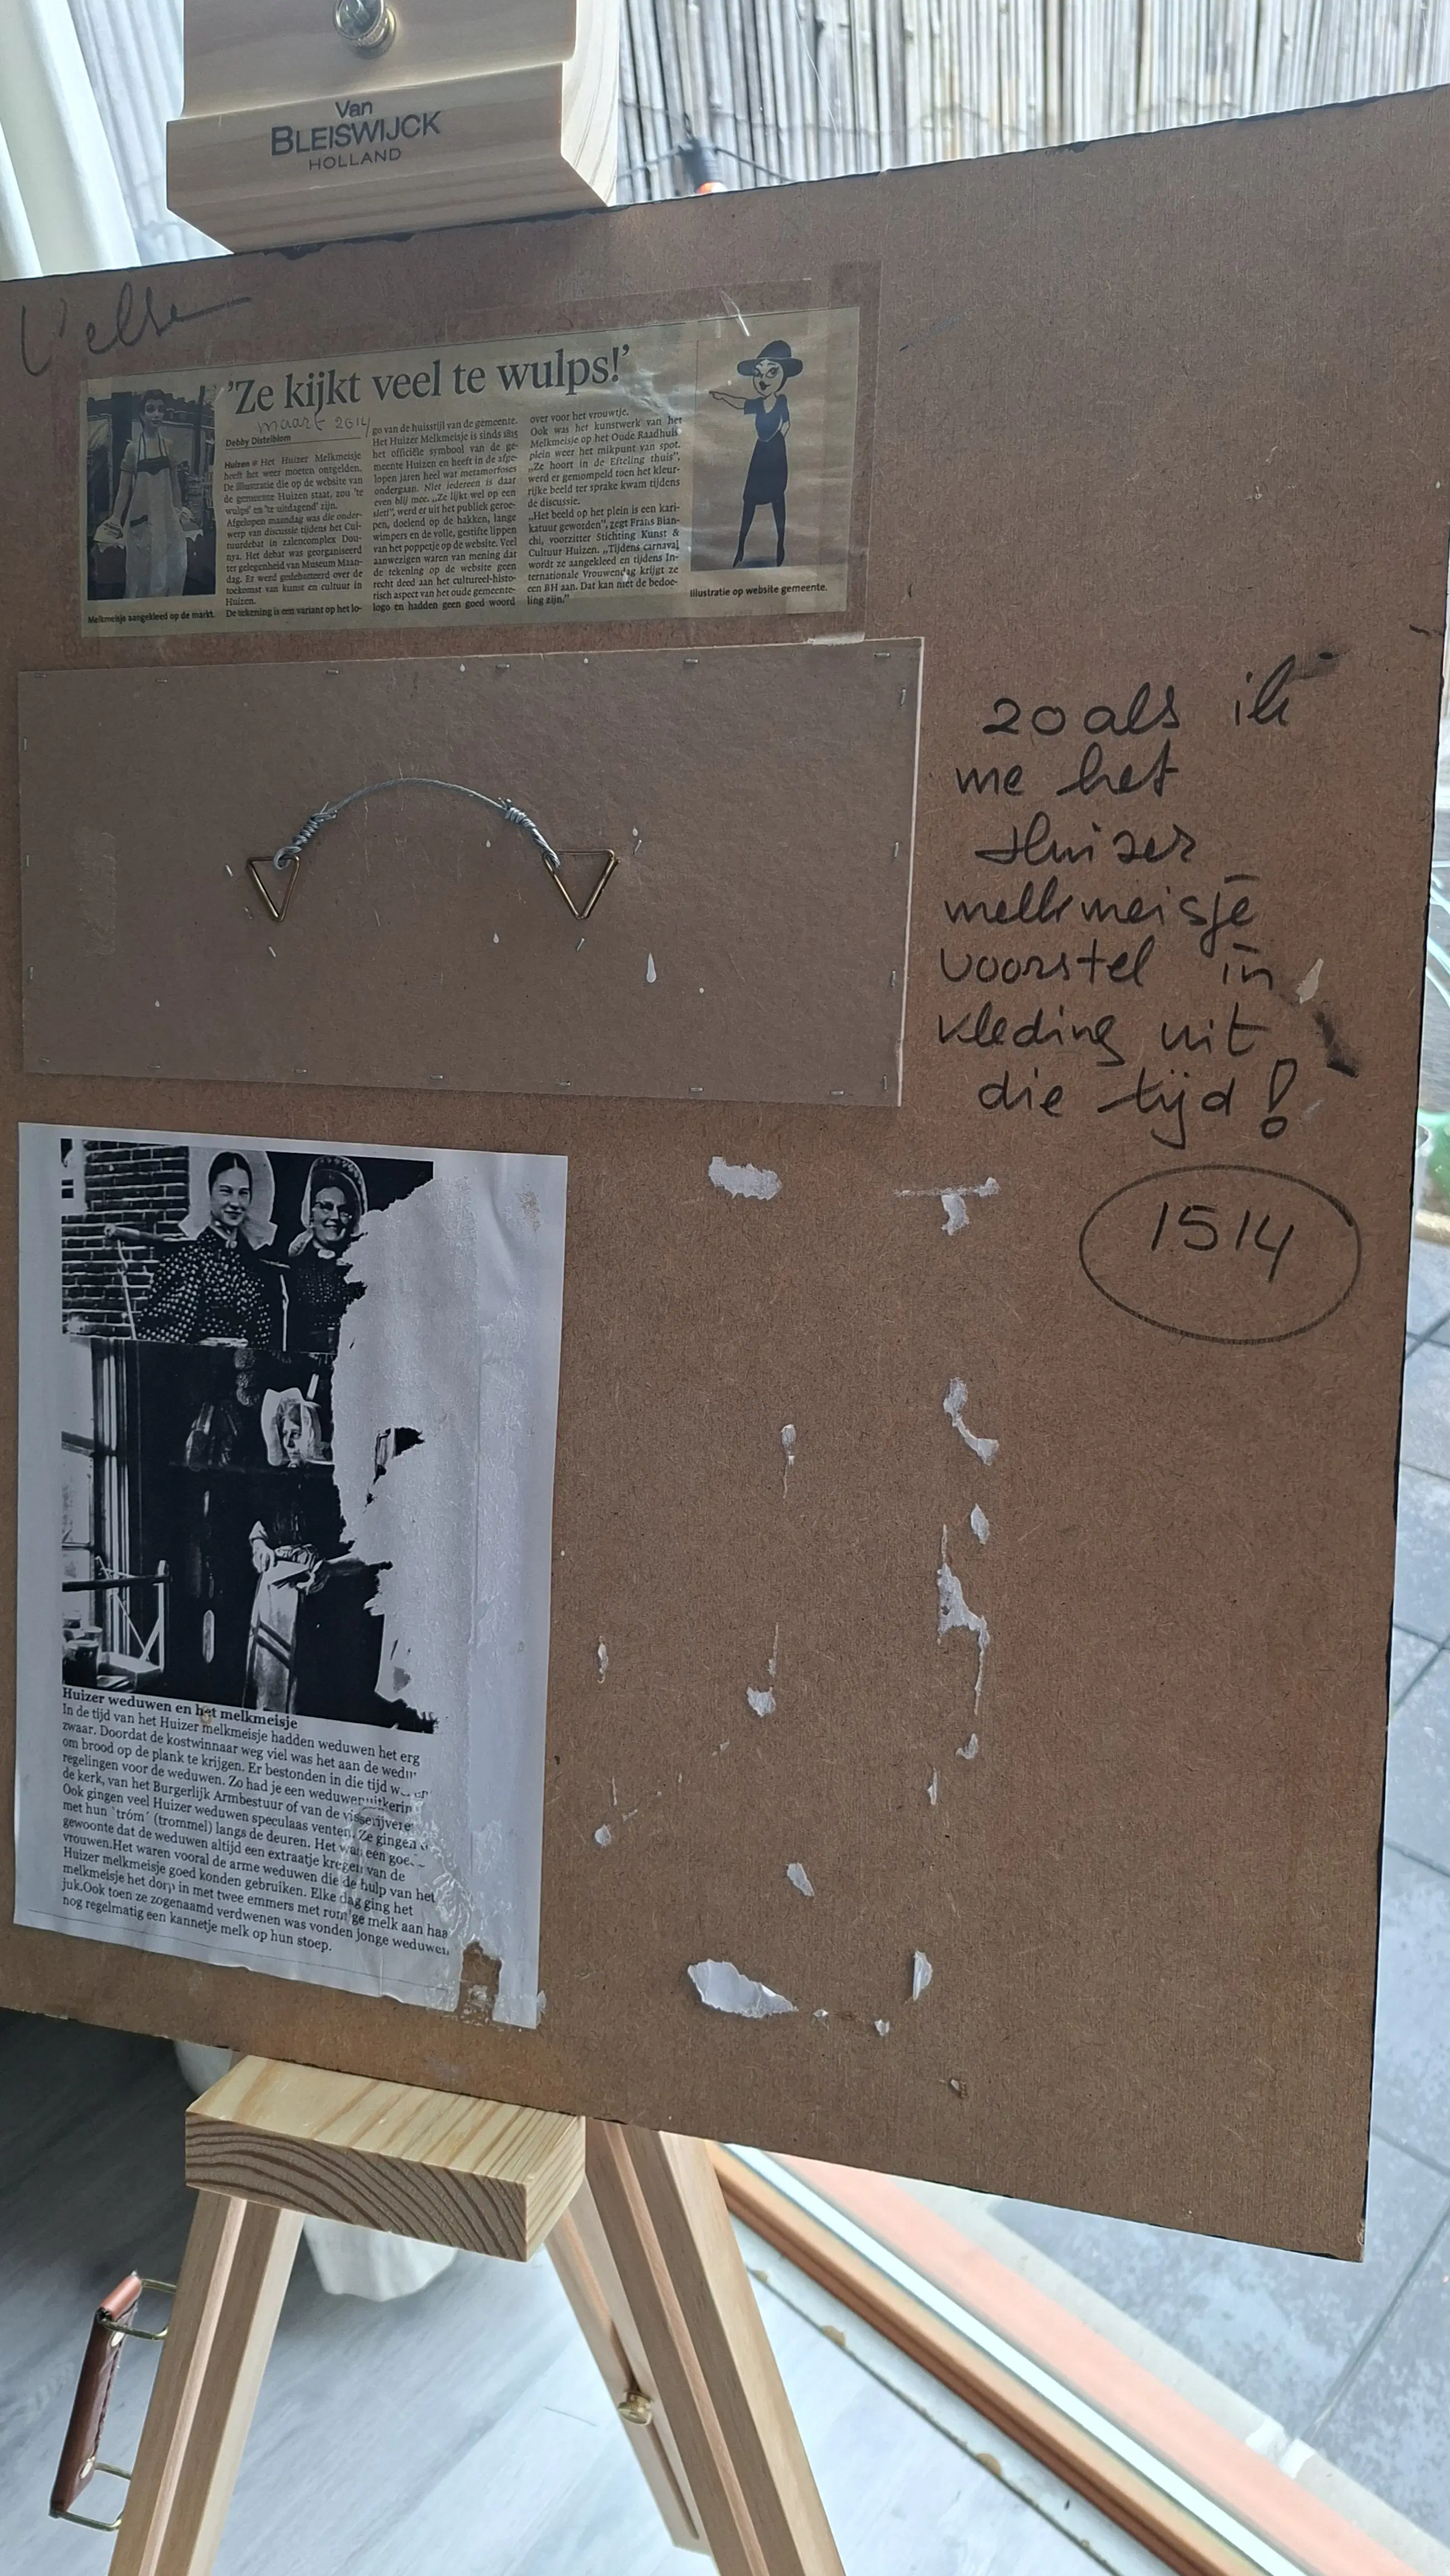 Van
BLEISWIJCK
HOLLAND
'Ze kijkt veel te wulps!'
maart 2014
Debby Distelblom
Huizen * Het Huizer Melkmeisje
heeft het weer moeten ontgelden.
De illustratie die op de website van
de gemeente Huizen staat, zou 'te
wulps' en 'te uitdagend' zijn.
Afgelopen maandag was die onder-
werp van discussie tijdens het Cul-
tuurdebat in zalencomplex Dou-
nya. Het debat was georganiseerd
ter gelegenheid van Museum Maan-
dag. Er werd gedebatteerd over de
toekomst van kunst en cultuur in
Huizen.
De tekening is een variant op het lo-
go van de huisstijl van de gemeente.
Het Huizer Melkmeisje is sinds 1815
het officiële symbool van de ge-
meente Huizen en heeft in de afge-
lopen jaren heel wat metamorfoses
ondergaan. Niet iedereen is daar
even blij mee. „Ze lijkt wel op een
slet!”, werd er uit het publiek geroe-
pen, doelend op de hakken, lange
wimpers en de volle, gestifte lippen
van het poppetje op de website. Veel
aanwezigen waren van mening dat
de tekening op de website geen
recht deed aan het cultureel-histo-
risch aspect van het oude gemeente-
logo en hadden geen goed woord
over voor het vrouwtje.
Ook was het kunstwerk van het
Melkmeisje op het Oude Raadhuis-
plein weer het mikpunt van spot.
„Ze hoort in de Efteling thuis”,
werd er gemompeld toen het kleur-
rijke beeld ter sprake kwam tijdens
de discussie.
„Het beeld op het plein is een kari-
katuur geworden”, zegt Frans Bian-
chi, voorzitter Stichting Kunst &
Cultuur Huizen. „Tijdens carnaval
wordt ze aangekleed en tijdens In-
ternationale Vrouwendag krijgt ze
een BH aan. Dat kan niet de bedoe-
ling zijn.”
Melkmeisje aangekleed op de markt.
Illustratie op website gemeente.
zoals ik
me het
Huizer
melkmeisje
voorstel in
kleding uit
die tijd!
1514
Huizer weduwen en het melkmeisje
In de tijd van het Huizer melkmeisje hadden weduwen het erg
zwaar. Doordat de kostwinnaar weg viel was het aan de
om brood op de plank te krijgen. Er bestonden in die tijd
regelingen voor de weduwen. Zo had je een
de kerk, van het Burgerlijk Armbestuur of van de
Ook gingen veel Huizer weduwen speculaas venten. Ze gingen
met hun 'tróm' (trommel) langs de deuren. Het was een
gewoonte dat de weduwen altijd een extraatje kregen van de
vrouwen.Het waren vooral de arme weduwen die de hulp van het
Huizer melkmeisje goed konden gebruiken. Elke dag ging het
melkmeisje het dorp in met twee emmers met rom'ge melk aan haa
juk.Ook toen ze zogenaamd verdwenen was vonden jonge weduwen
nog regelmatig een kannetje melk op hun stoep.